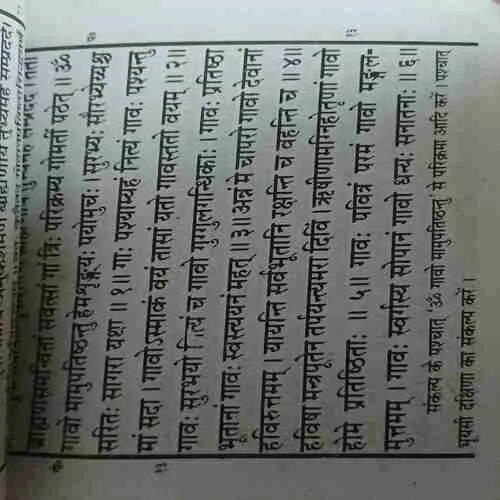 ब्राह्मणसमन्वितां सवत्सां गां त्रिः परिक्रम्य गोमतीं पठेत् ॥ ॐ
गावो मामुपतिष्ठन्तु हेमशृङ्ग्यः पयोमुचः । सुरभ्यः सौरभेय्यश्च
सरितः सागरं यथा ॥ १॥ गाः पश्याम्यहं नित्यं गावः पश्यन्तु
मां सदा । गावोऽस्माकं वयं तासां यतो गावस्ततो वयम् ॥ २॥
गावः सुरभयो नित्यं च गावो गुग्गुलगन्धिकाः । गावः प्रतिष्ठा
भूतानां गावः स्वस्त्ययनं महत् ॥ ३॥ अन्नं मे चापरो गावो देवानां
हविरुत्तमम् । यायन्ति सर्वभूतानि रक्षन्ति च वहन्ति च ॥ ४॥
हविषा मन्त्रपूतेन तर्पयन्त्यमरा दिवि । ऋषीणामग्निहोतृणां गावो
होमे प्रतिष्ठिताः ॥ ५॥ गावः पवित्रं परमं गावो मङ्गल-
मुत्तमम् । गावः स्वर्गस्य सोपानं गावो धन्यः सनातनाः ॥ ६॥
संकल्प के पश्चात् 'ॐ गावो मामुपतिष्ठन्तु' से परिक्रमा आदि करें । पश्चात्
भूयसी दक्षिणा का संकल्प करें ।